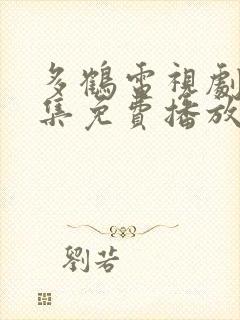 多鶴電視劇
集免費播放
劉若